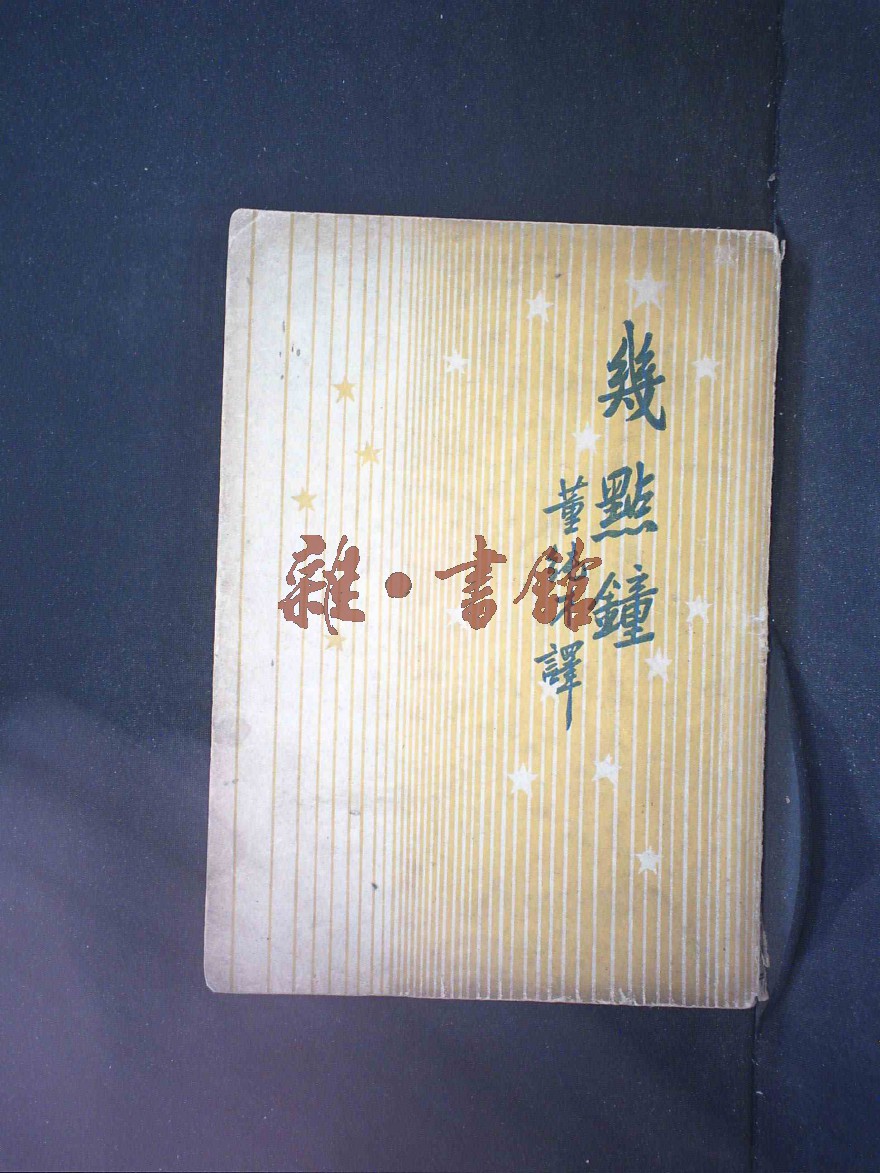 幾點鐘
董純才譯
雜·書館